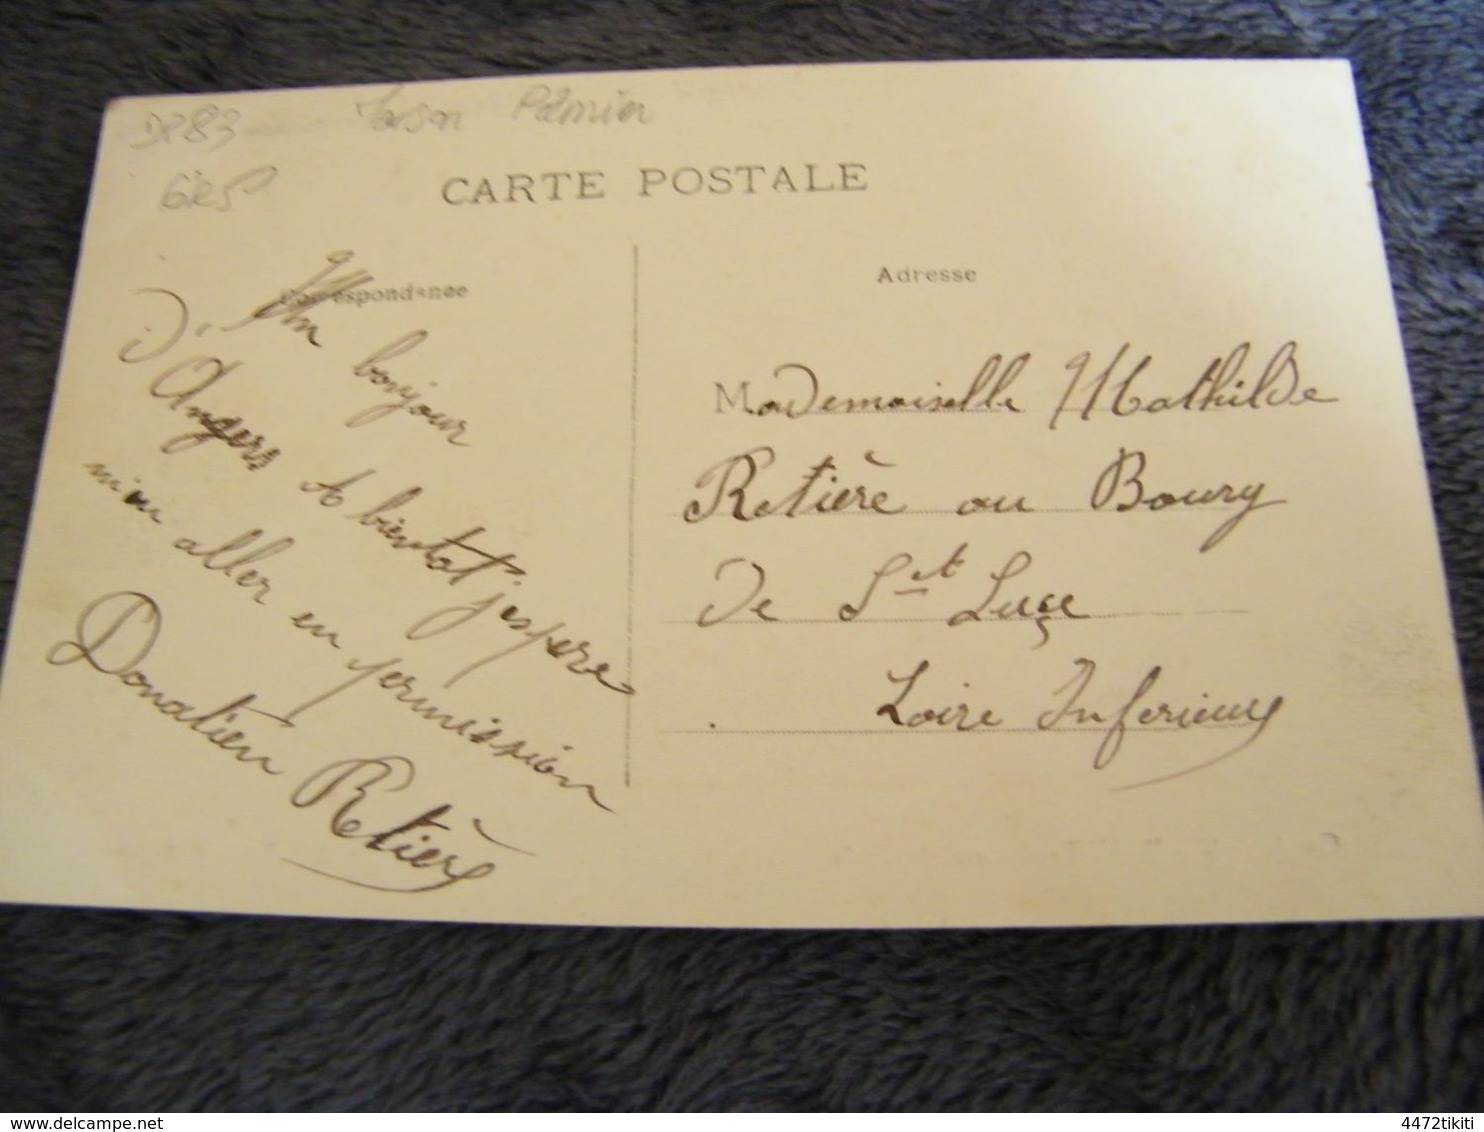 CARTE POSTALE
Correspondance
Un bonjour
D'Angers a bientot j'espere
m'en aller en permission
Donatien Retière
Adresse
Mademoiselle Mathilde
Retière au Bourg
De Ste Luce
Loire Inferieure
www.delcampe.net
4472tikiti